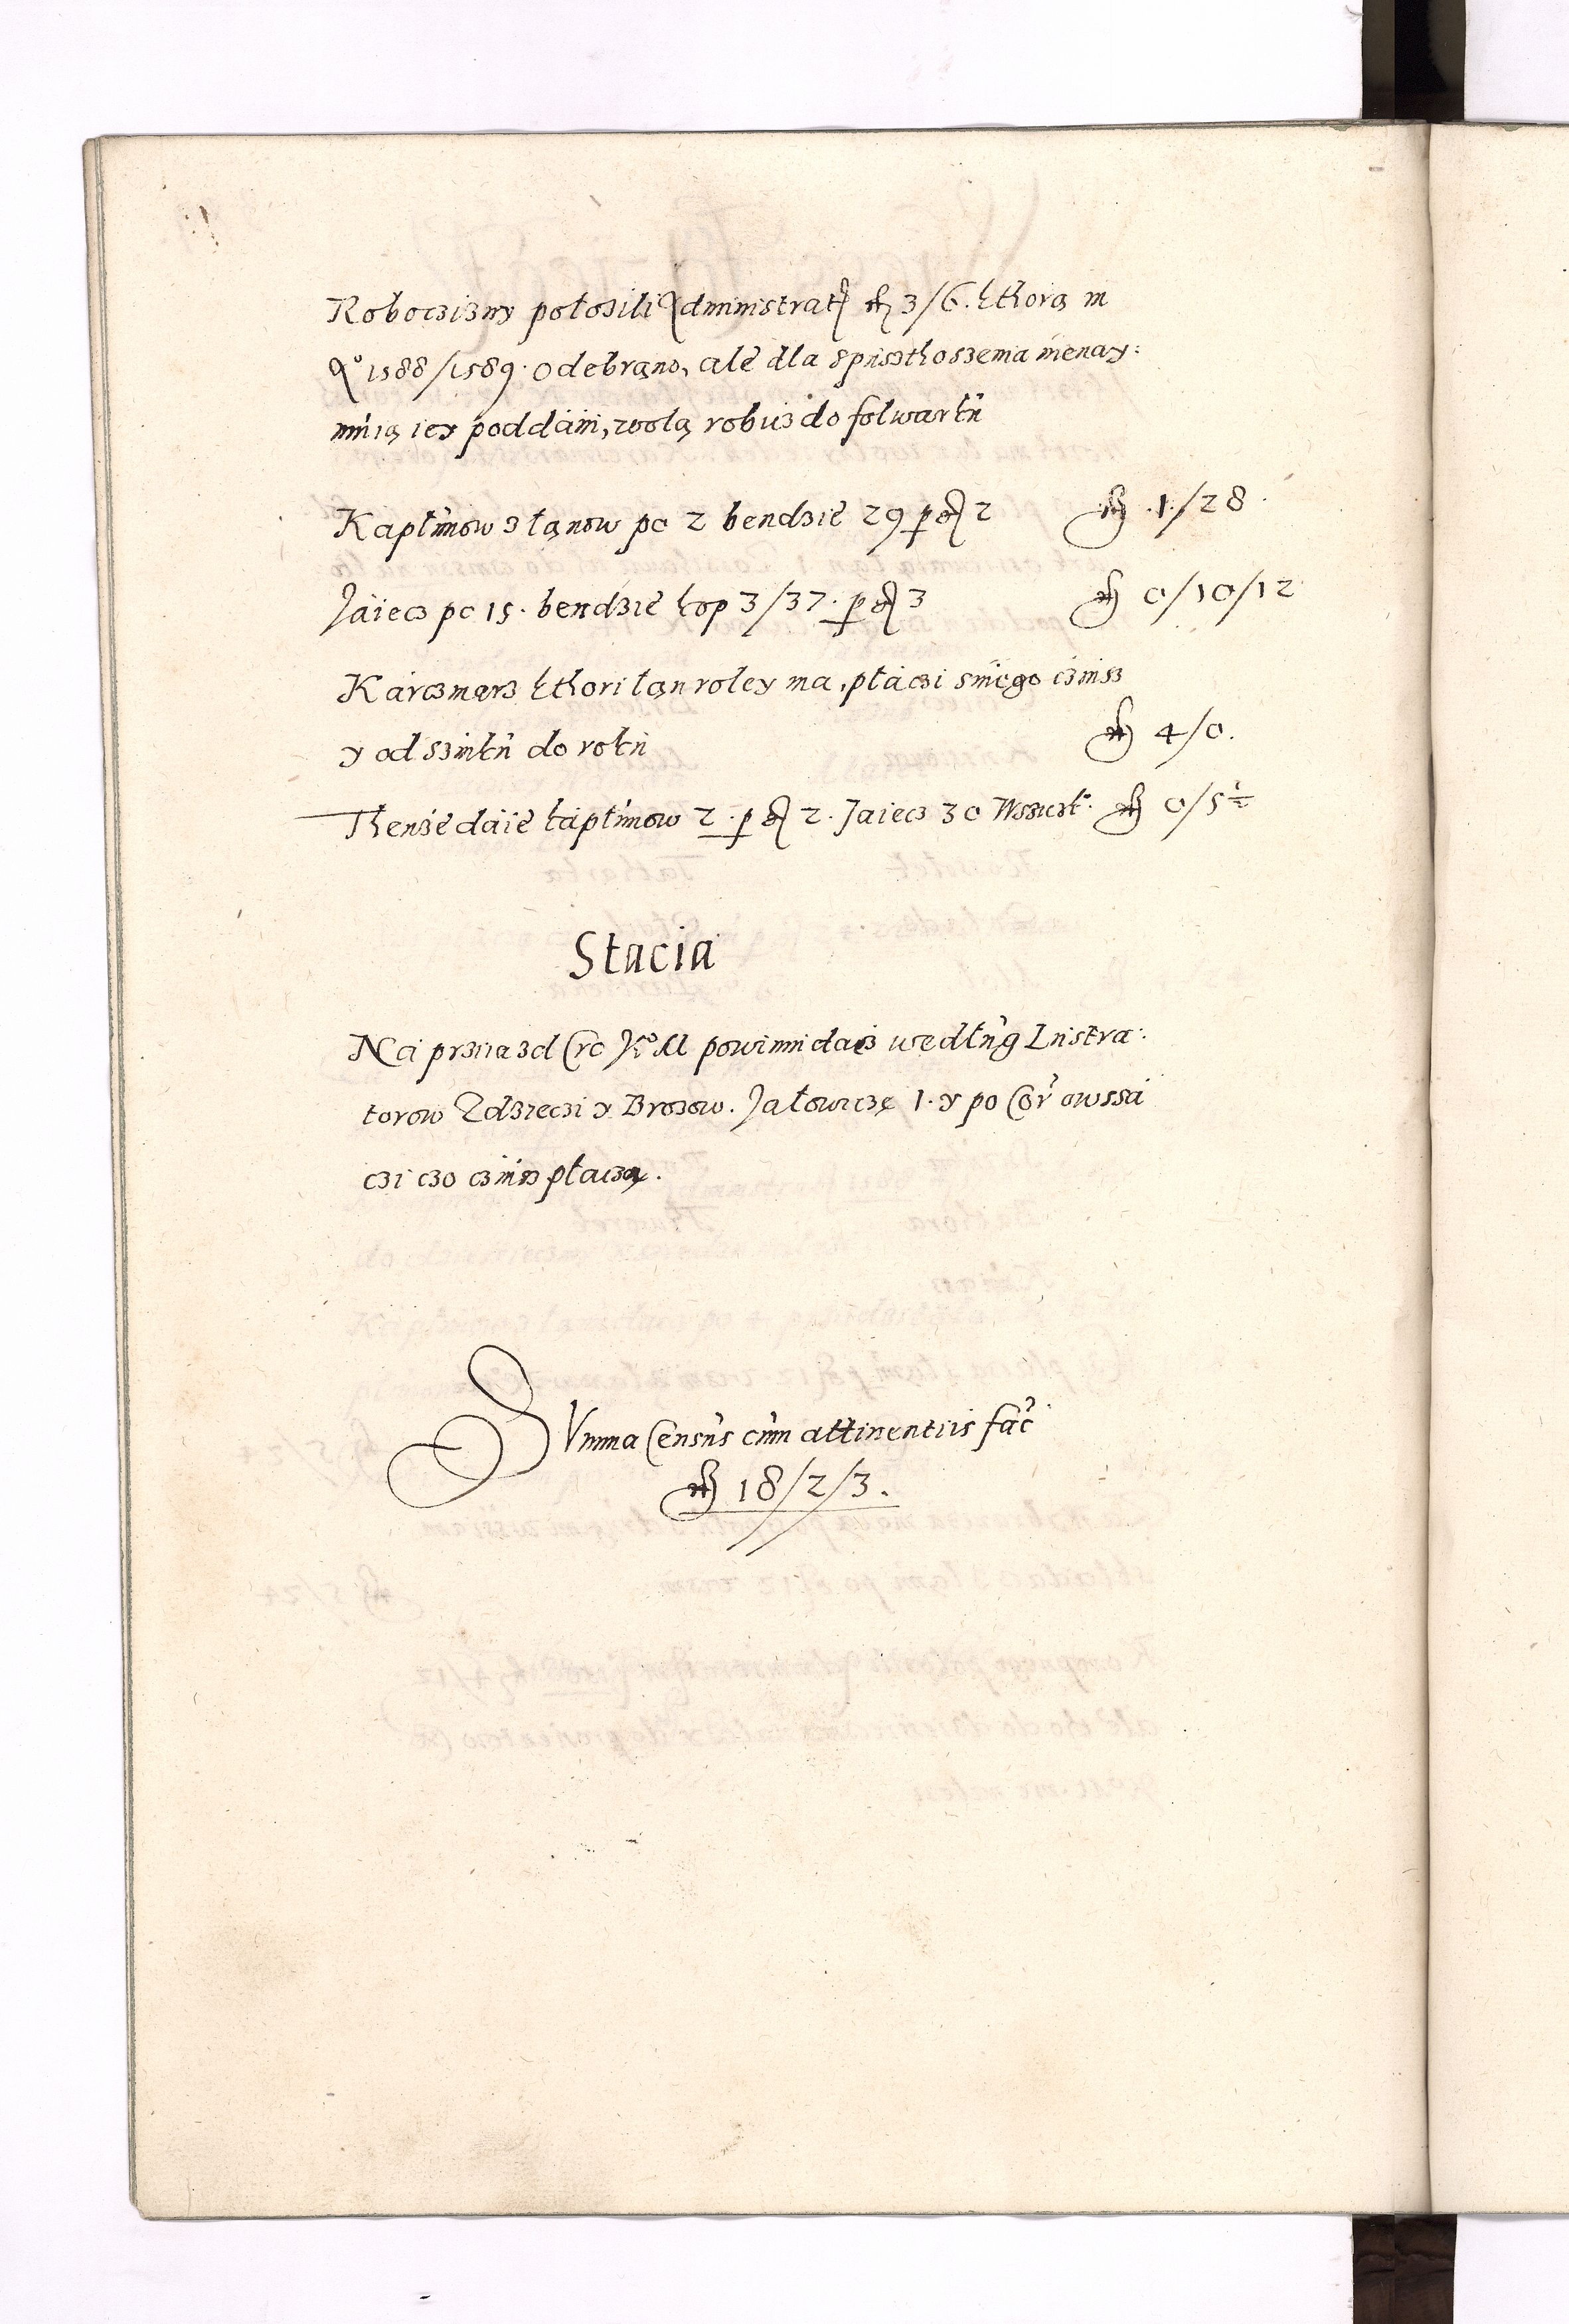 Roboczizny położili Administrat: fl 3/6. kthorą in
A° 1588/1589. odebrano, ale dla spusthoszenia nienay:
muią iey poddani, wolą robiz do folwarku
Kapłunow z łanow po 2 bendzie 29 p ǥ 2 fl .1./28.
Jaiecz po 15. bendzie kop 3/37. p ǥ 3 fl 0/10/12
Karczmarz kthori łan roley ma, płaczi s niego czinsz
y od szinku do roku fl 4/0.
Thenże daie kapłunow 2. p ǥ 2. Jaiecz 30 fl 0/5
Stacia
Na przijazd Cro Ko M powinni dacz wedlug Lustra:
torow Zdzieczi y Brozow. Jałowiczę 1. y po Cor owssa
czi czo czinsz płaczą.
SVmma Census cum attinentiis fac
fl 18/2/3.